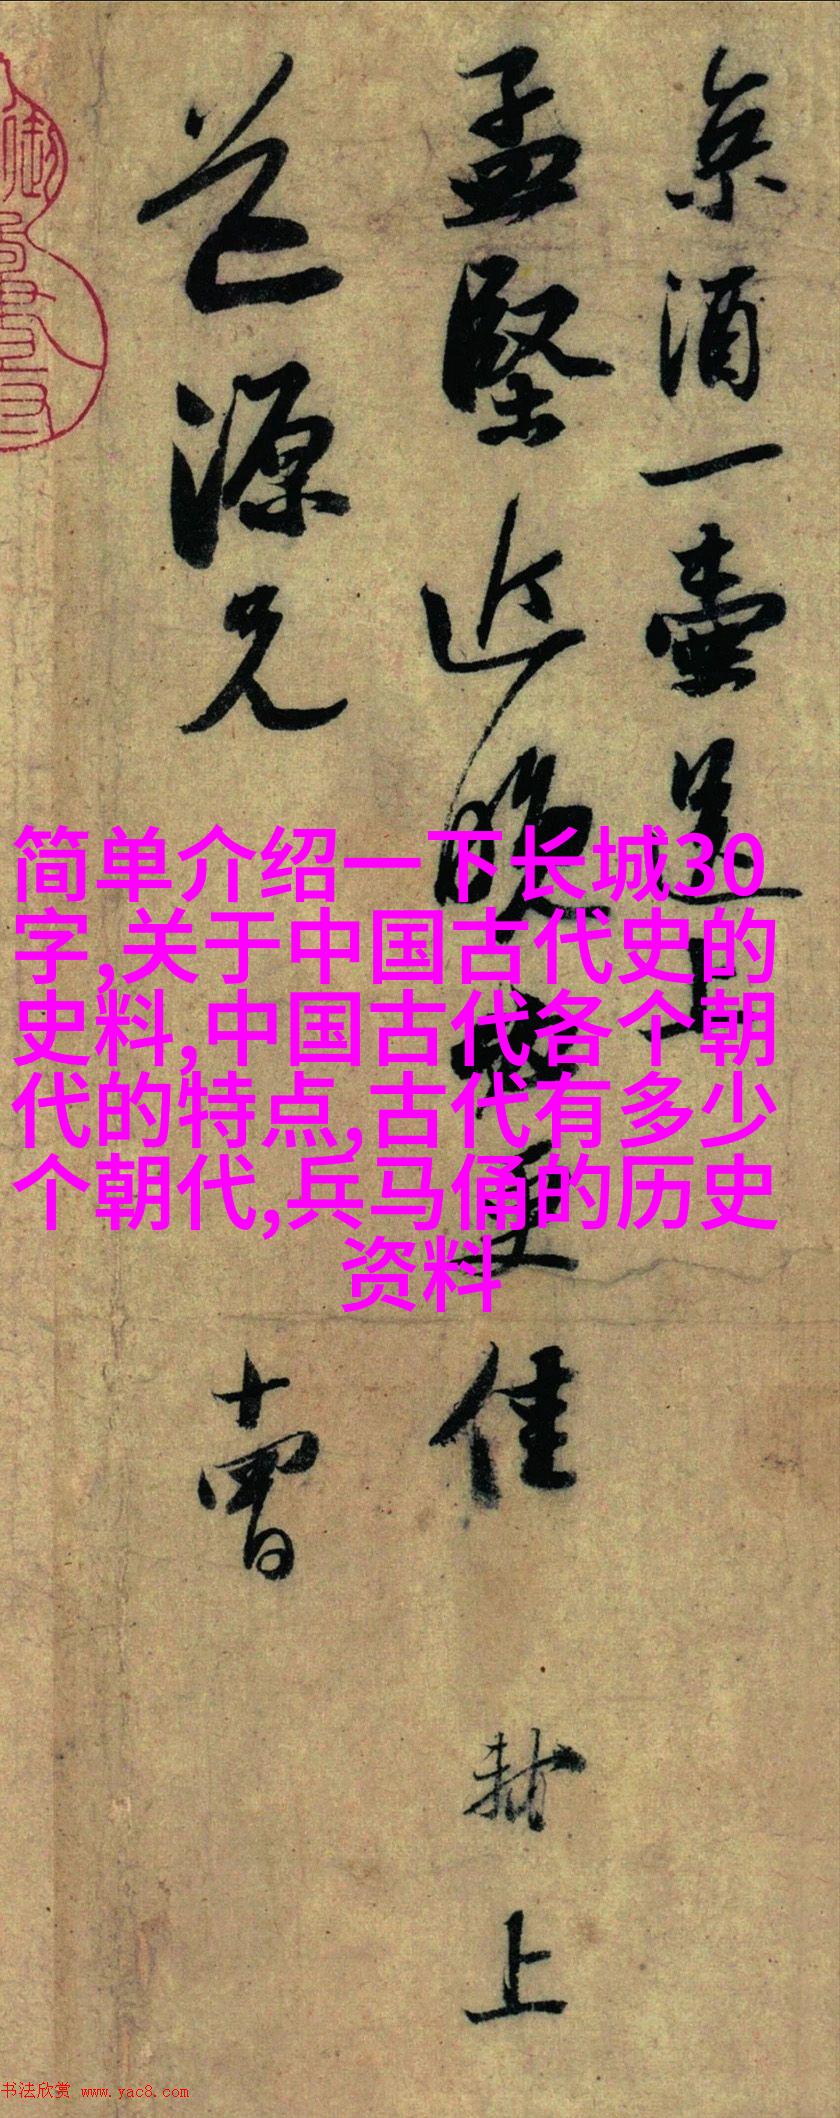 京酒一壺送上
孟堅近晚必更佳
芾上
道源兄
十曹
简单介绍一下长城30
字,关于中国古代史的
史料,中国古代各个朝
代的特点,古代有多少
个朝代,兵马俑的历史
资料
书法欣赏 www.yac8.com